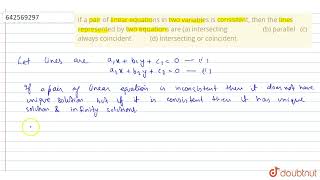 642569297
If a pair of linear equations in two variables is consistent, then the lines
represented by two equations are (a) intersecting (b) parallel (c)
always coincident (d) intersecting or coincident
Let lines are a₁x + b₁y + c₁ = 0 — (1)
a₂x + b₂y + c₂ = 0 — (1)
If a pair of linear equation is inconsistent then it does not have
unique solution but if it is consistent then it has unique
solution & infinity solutions
doubtnut